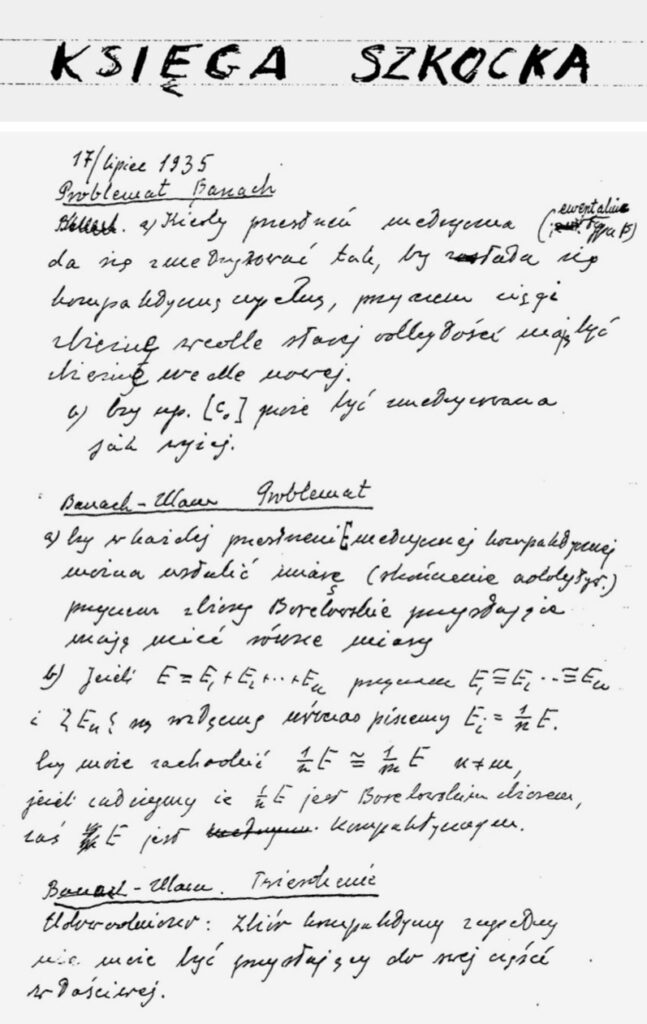 KSIĘGA SZKOCKA
17/lipiec 1935
Problemat Banach
a) Kiedy przestrzeń metryczna (ewentalnie typu B)
da się zmetryzować tak, by stała się
kompaktyczną i zupełną, przyczem ciągi
zbieżne wedle starej odległości mają być
zbieżne wedle nowej.
b) Czy np. [c₀] może być zmetryzowana
jak wyżej.
Banach-Ulam Problemat
a) Czy w każdej przestrzeni E metrycznej kompaktycznej
można ustalić miarę (skończenie addytyw.)
przyczem zbiory Borelowskie przystające
mają mieć równe miary
b) Jeżeli E = E₁ + E₂ + .. + Eₙ przyczem E₁ ≅ E₂ .. ≅ Eₙ
i {Eₙ} są rozłączne wówczas piszemy Eᵢ = 1/n E.
Czy może zachodzić 1/n E ≅ 1/m E n ≠ m,
jeśli żądiemy że 1/n E jest Borelowskim zbiorem,
zaś E jest kompaktycznym.
Banach-Ulam. Twierdzenie
Udowodniono: Zbiór kompaktyczny zupełny
nie może być przystający do swej części
właściwej.